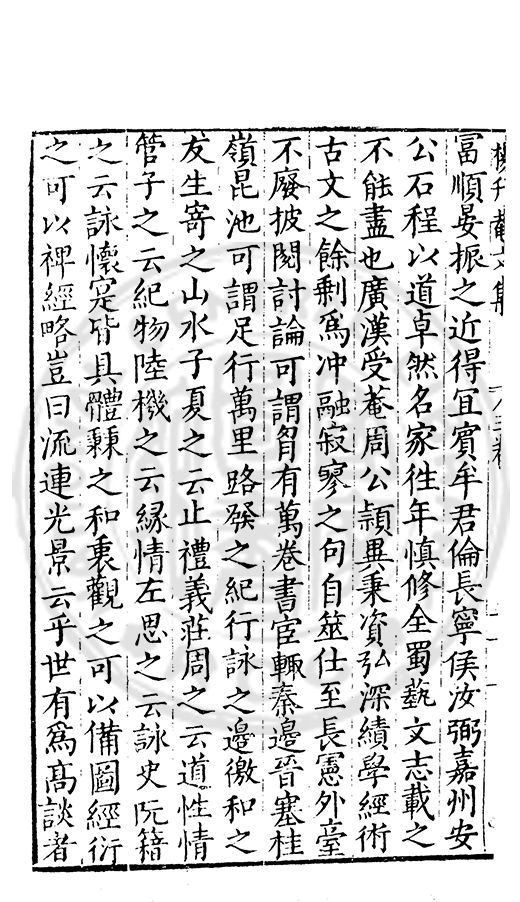 楊升菴文集
富順晏振之近得冝賓牟君倫長寧侯汝弼嘉州安
公石程以道卓然名家徃年慎修全蜀藝文志載之
不能盡也廣漢受菴周公頴異秉資弘深績學經術
古文之餘剩爲冲融寂寥之句自筮仕至長憲外臺
不廢披閱討論可謂胷有萬卷書宦轍秦邊晉塞桂
嶺昆池可謂足行萬里路發之紀行詠之邊徼和之
友生寄之山水子夏之云止禮義莊周之云道性情
管子之云紀物陸機之云緣情左思之云詠史阮籍
之云詠懷寔皆具體兼之和衷觀之可以備圖經衍
之可以裨經略豈曰流連光景云乎世有爲高談者